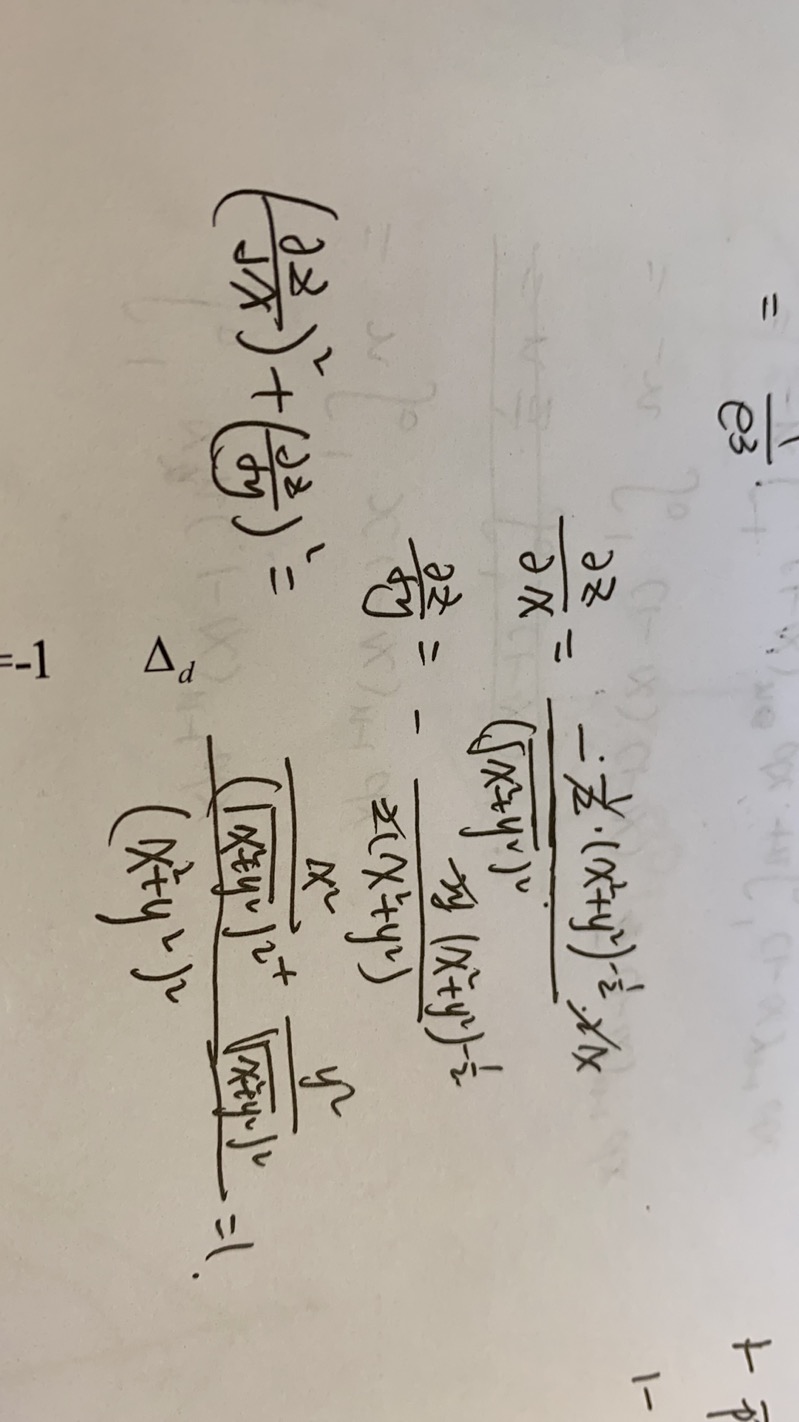 = 1/e³.
∂z/∂x = -·1/2·(x²+y²)^(-1/2)·2x / (√(x²+y²))²
∂z/∂y = - y(x²+y²)^(-1/2) / (x²+y²)
(∂z/∂x)² + (∂z/∂y)² = (x²/(√(x²+y²))² + y²/(√(x²+y²))²) / (x²+y²)² = 1.
Δd
=-1